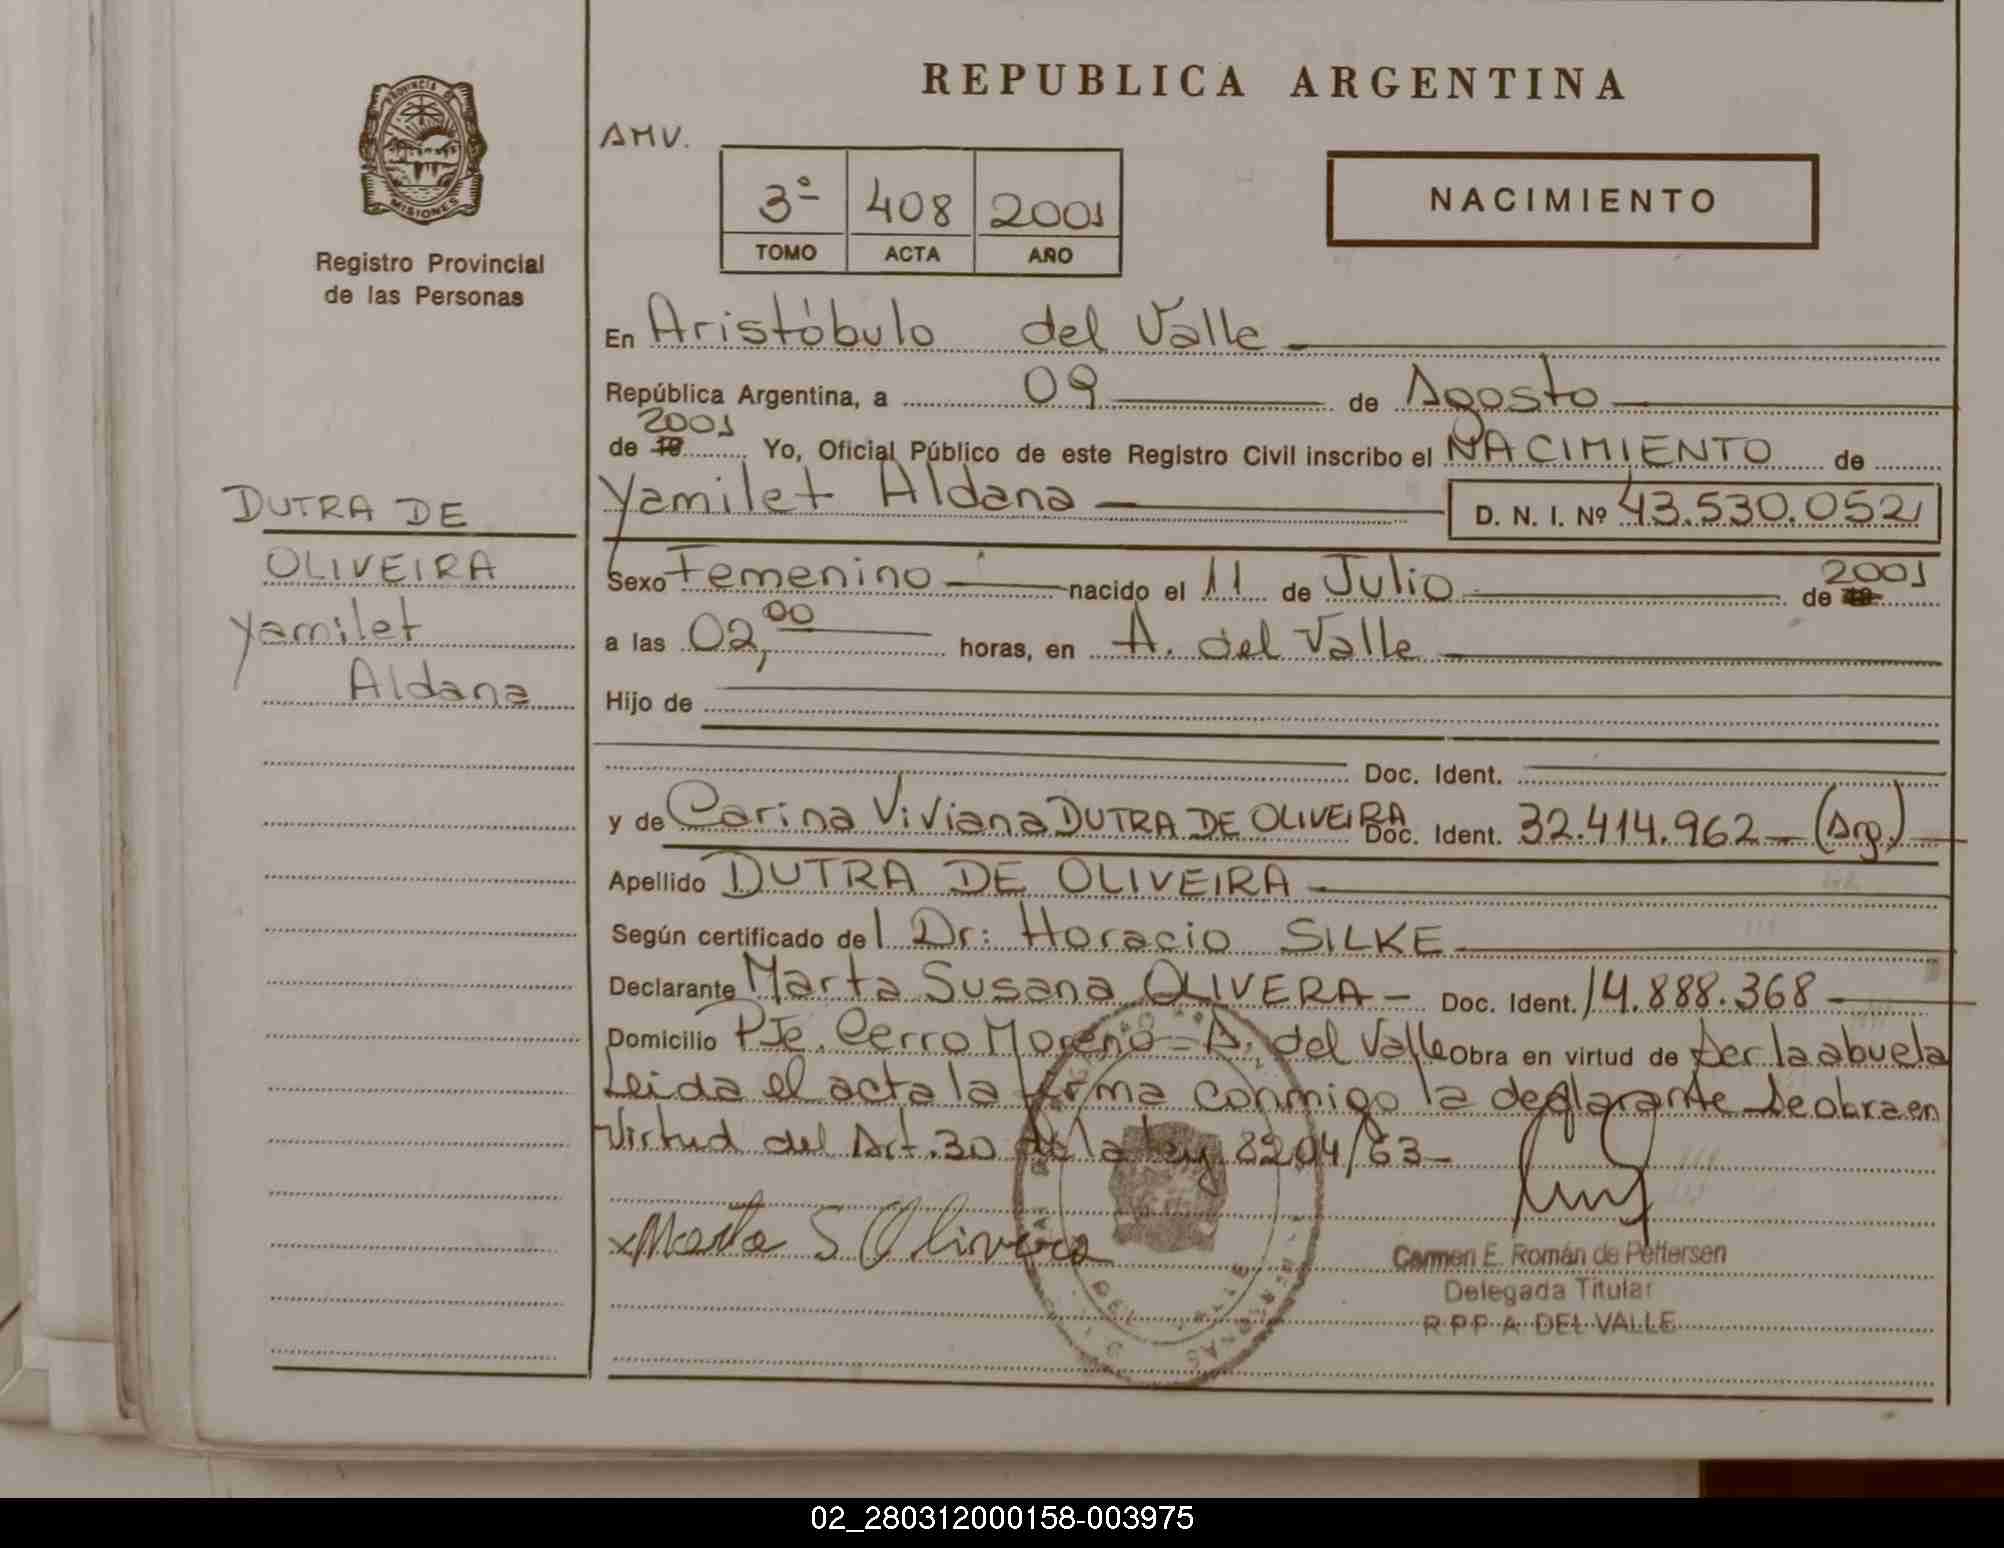 REPUBLICA ARGENTINA
PROVINCIA DE
MISIONES
Registro Provincial
de las Personas
AMV.
3º 408 2001
TOMO ACTA AÑO
NACIMIENTO
En Aristóbulo del Valle
República Argentina, a 09 de Agosto
2001
de 19 Yo, Oficial Público de este Registro Civil inscribo el NACIMIENTO de
DUTRA DE
OLIVEIRA
Yamilet
Aldana
Yamilet Aldana D. N. I. Nº 43.530.052
Sexo Femenino nacido el 11 de Julio de 2001
a las 02,00 horas, en A. del Valle
Hijo de
Doc. Ident.
y de Carina Viviana DUTRA DE OLIVEIRA Doc. Ident. 32.414.962 (Arg.)
Apellido DUTRA DE OLIVEIRA
Según certificado del Dr: Horacio SILKE
Declarante Marta Susana OLIVERA - Doc. Ident. 14.888.368
Domicilio PJe. Cerro Moreno - A. del Valle Obra en virtud de Ser la abuela
Leida el acta la firma conmigo la declarante Se obra en
Virtud del Art. 30 de la ley 8204/63-
x Marta S Olivera
DEL VALLE
Carmen E. Román de Pettersen
Delegada Titular
R.P.P. A. DEL VALLE
02_280312000158-003975